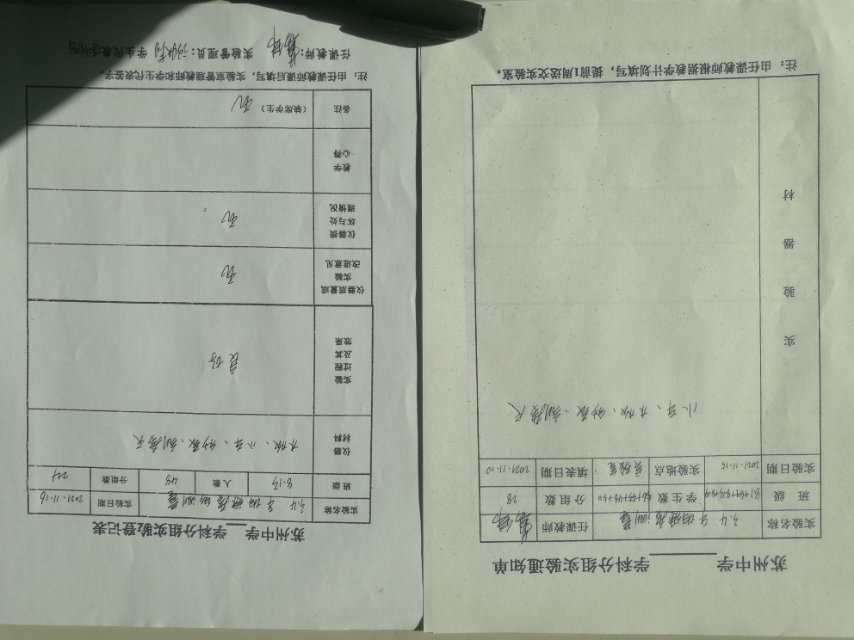 苏州中学 学科分组实验通知单
实验名称 3.4 平均速度的测量 任课教师
班 级 学生数 分组数 28
实验日期 2021.11.15 实验地点 实验室 填表日期 2021.11.10
实验器材
小车、木板、秒表、刻度尺
注：由任课教师根据教学计划填写，提前1周送交实验室。
苏州中学 学科分组实验登记表
实验名称 3.4 平均速度的测量 实验日期 2021.11.16
班 级 8.13 人 数 48 分组数 24
仪器材料 木板、小车、秒表、刻度尺
实验过程及其效果 良好
仪器质量或实验改进意见 无
仪器损坏与处理情况 无
教学心得
备注 （缺席学生） 无
注：由任课教师课后填写，实验室管理教师和学生代表签字。
任课教师： 实验管理员： 学生代表：